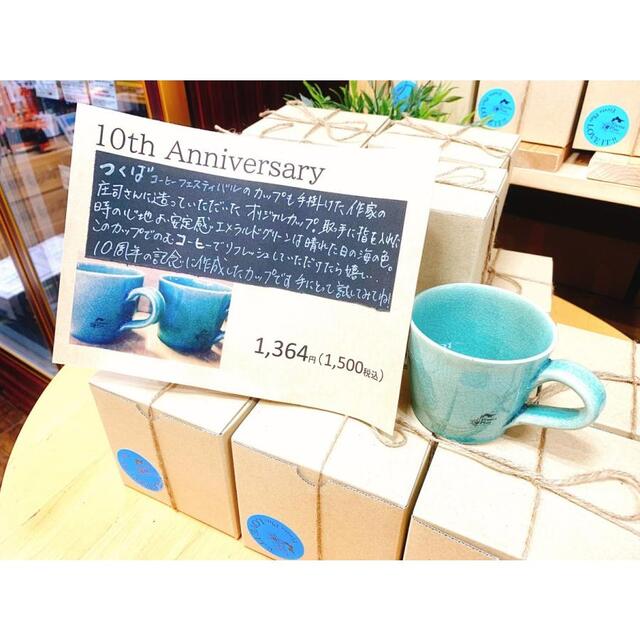 10th Anniversary
つくばコーヒーフェスティバルのカップも手掛けた作家の
庄司さんに造っていただいたオリジナルカップ。取手に指を入れた
時の心地よい安定感。エメラルドグリーンは晴れた日の海の色。
このカップでのむコーヒーでリフレッシュしていただけたら嬉しい…
10周年の記念に作成したカップです手にとって試してみてね!
1,364円(1,500税込)
LOVE IT!!